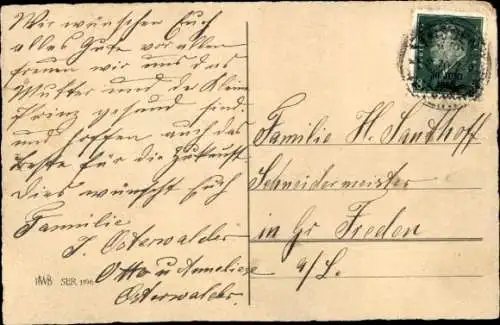 Wir wünschen Euch
alles Gute vor allem
freuen wir uns das
Mutter und der Kleine
Prinz gesund sind.
und hoffen auch das
beste für die Zukunft
Dies wünscht Euch
Familie
J. Osterwalder
Otto u Anneliese
Osterwalder.
HWB SER 1996
Familie H. Sandhoff
Schneidermeister
in Gr Freden
a/L.